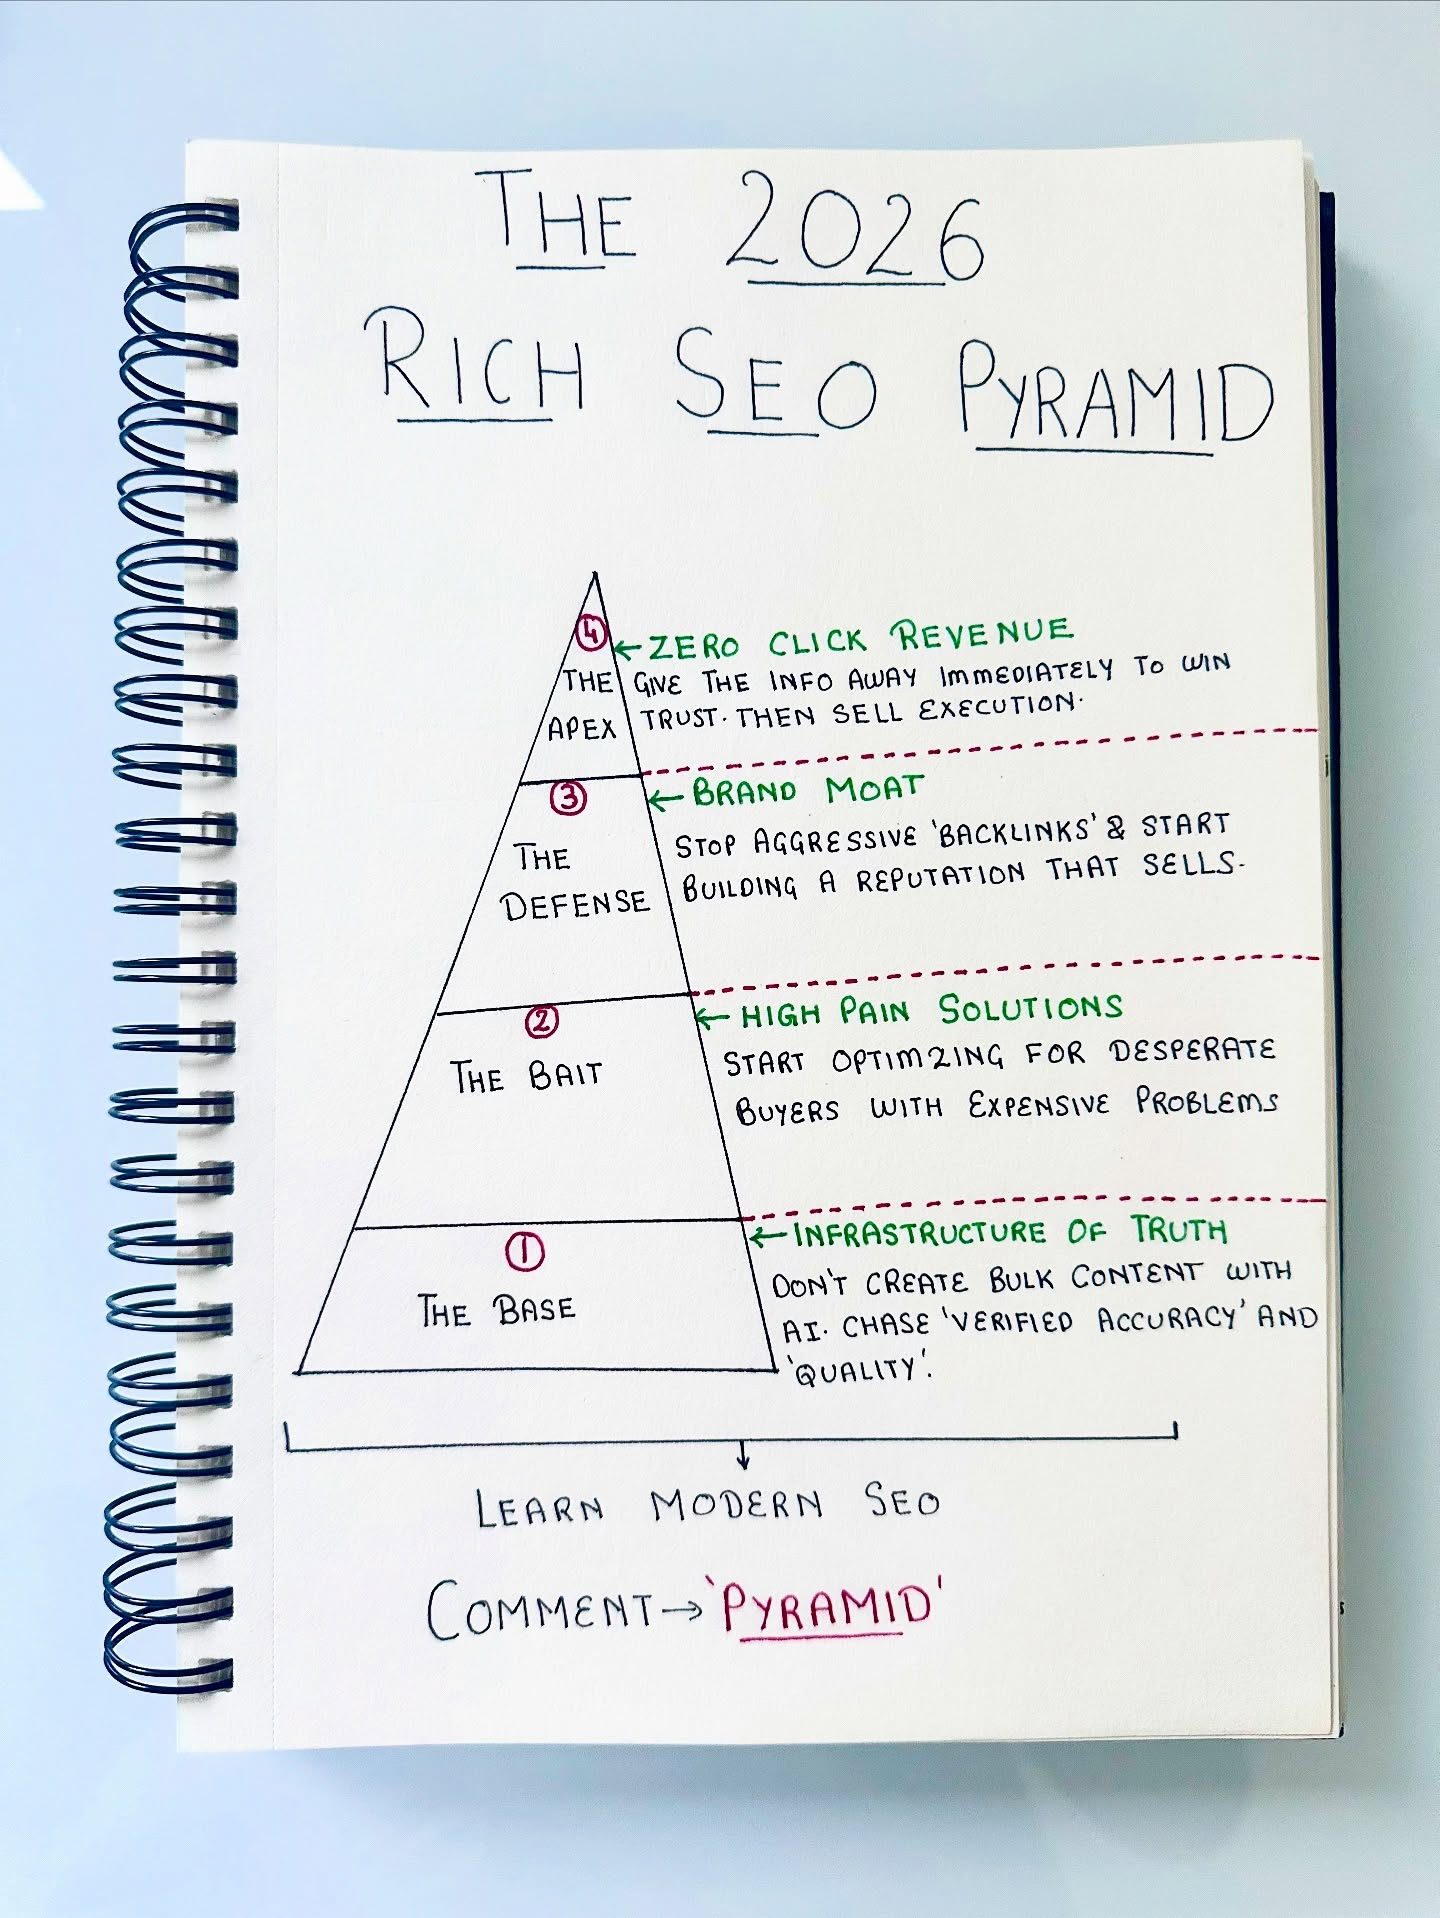 THE 2026
RICH SEO PYRAMID
4
THE
APEX
← ZERO CLICK REVENUE
GIVE THE INFO AWAY IMMEDIATELY TO WIN
TRUST. THEN SELL EXECUTION.
3
THE
DEFENSE
← BRAND MOAT
STOP AGGRESSIVE 'BACKLINKS' & START
BUILDING A REPUTATION THAT SELLS.
2
THE BAIT
← HIGH PAIN SOLUTIONS
START OPTIMZING FOR DESPERATE
BUYERS WITH EXPENSIVE PROBLEMS
1
THE BASE
← INFRASTRUCTURE OF TRUTH
DON'T CREATE BULK CONTENT WITH
AI. CHASE 'VERIFIED ACCURACY' AND
'QUALITY'.
LEARN MODERN SEO
COMMENT → 'PYRAMID'